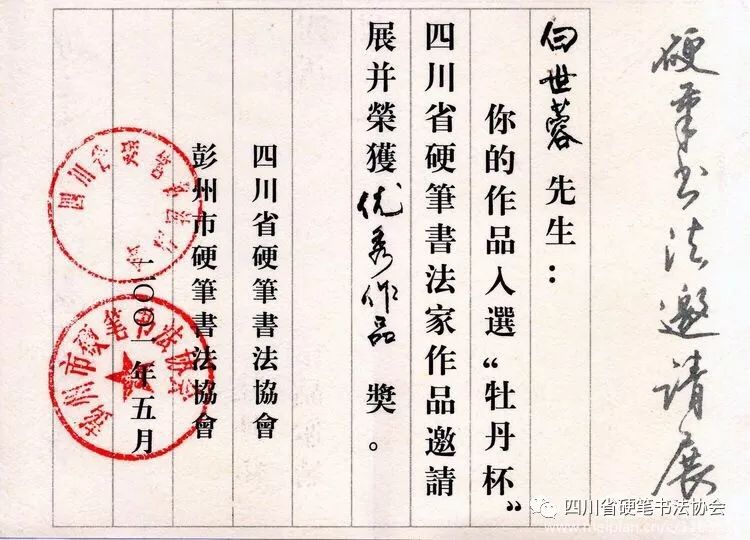 硬笔书法邀请展
白世蓉 先生：
你的作品入選“牡丹杯”
四川省硬筆書法家作品邀請
展并榮獲优秀作品 獎。
四川省硬筆書法協會
彭州市硬筆書法協會
二〇〇一年五月
彭州市硬笔书法协会
四川省硬笔书法协会